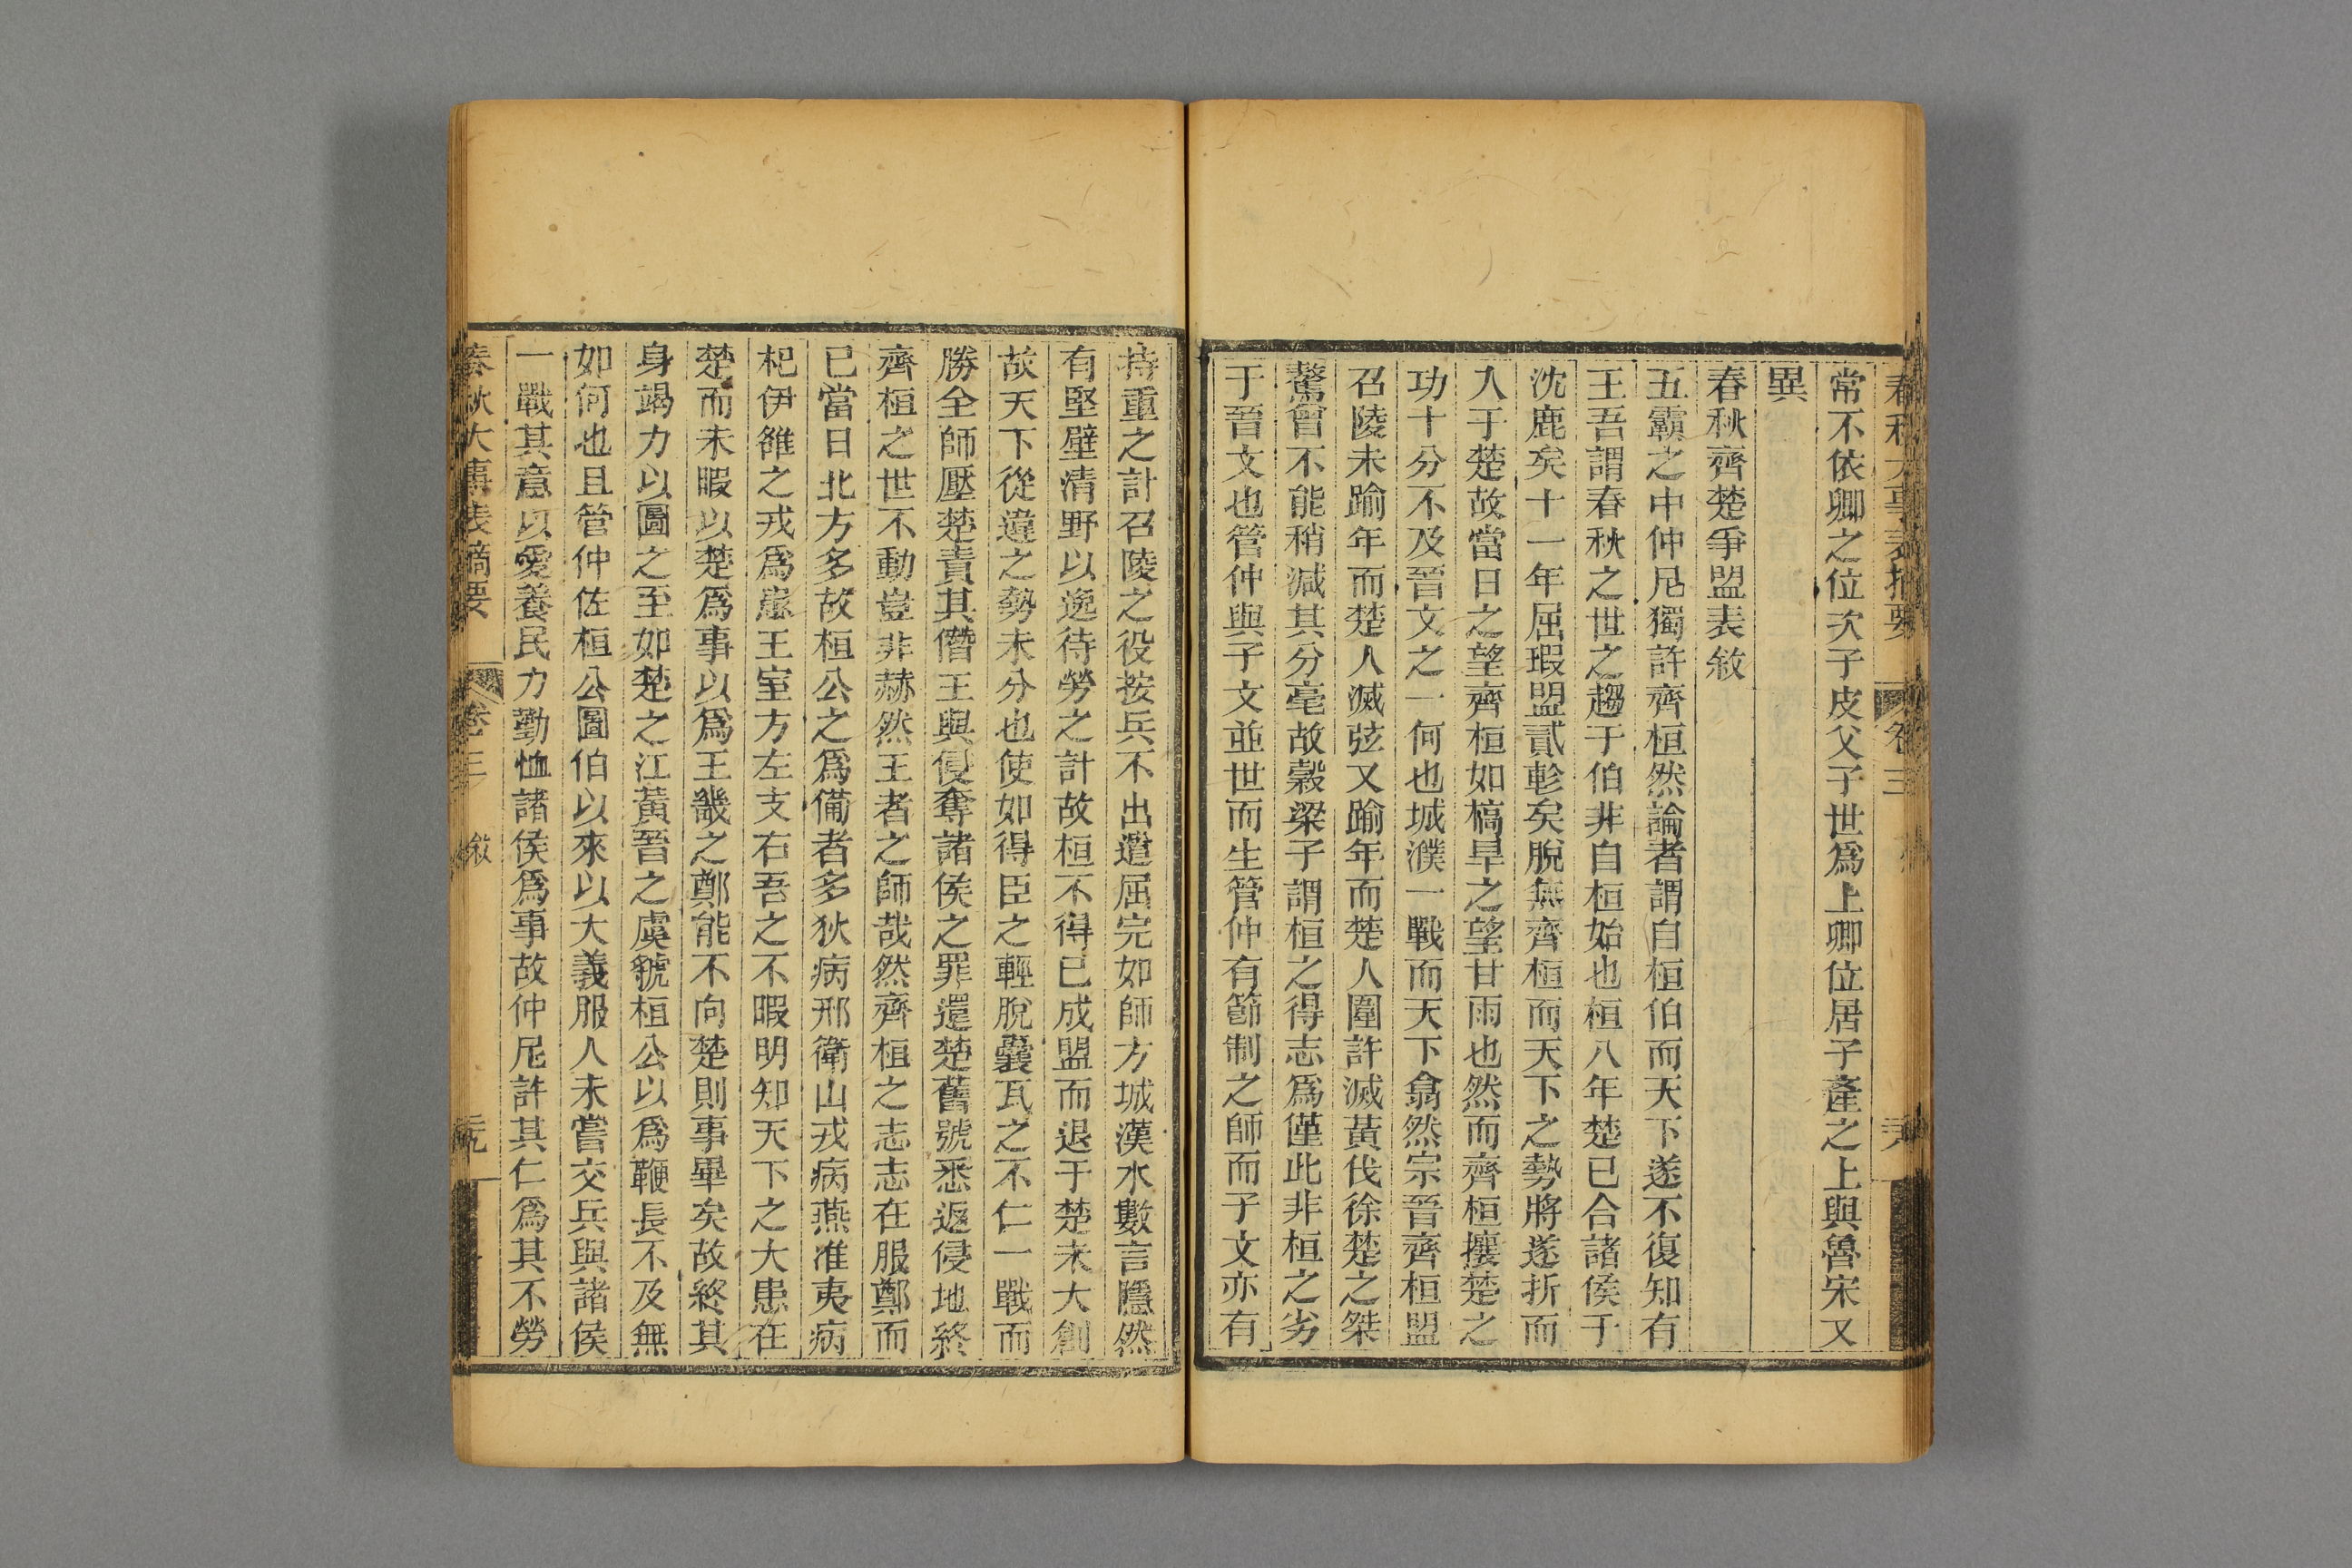 春秋大事表摘要 卷三
常不依卿之位次子皮父子世爲上卿位居子產之上與魯宋又
異
春秋齊楚爭盟表敘
五霸之中仲尼獨許齊桓然論者謂自桓伯而天下遂不復知有
王吾謂春秋之世之趨于伯非自桓始也桓八年楚已合諸侯于
沈鹿矣十一年屈瑕盟貳軫矣脫無齊桓而天下之勢將遂折而
入于楚故當日之望齊桓如槁旱之望甘雨也然而齊桓攘楚之
功十分不及晉文之一何也城濮一戰而天下翕然宗晉齊桓盟
召陵未踰年而楚人滅弦又踰年而楚人圍許滅黃伐徐楚之桀
驁曾不能稍減其分毫故穀梁子謂桓之得志爲僅此非桓之劣
于晉文也管仲與子文並世而生管仲有節制之師而子文亦有
持重之計召陵之役按兵不出遣屈完如師方城漢水數言隱然
有堅壁清野以逸待勞之計故桓不得已成盟而退于楚未大創
故天下從違之勢未分也使如得臣之輕脫囊瓦之不仁一戰而
勝全師壓楚責其僭王與侵奪諸侯之罪還楚舊號悉返侵地終
齊桓之世不動豈非赫然王者之師哉然齊桓之志志在服鄭而
已當日北方多故桓公之爲備者多狄病邢衛山戎病燕淮夷病
杞伊雒之戎爲患王室方左支右吾之不暇明知天下之大患在
楚而未暇以楚爲事以爲王畿之鄭能不向楚則事畢矣故終其
身竭力以圖之至如楚之江黃晉之虞虢桓公以爲鞭長不及無
如何也且管仲佐桓公圖伯以來以大義服人未嘗交兵與諸侯
一戰其意以愛養民力勤恤諸侯爲事故仲尼許其仁爲其不勞
春秋大事表摘要 卷三 敘